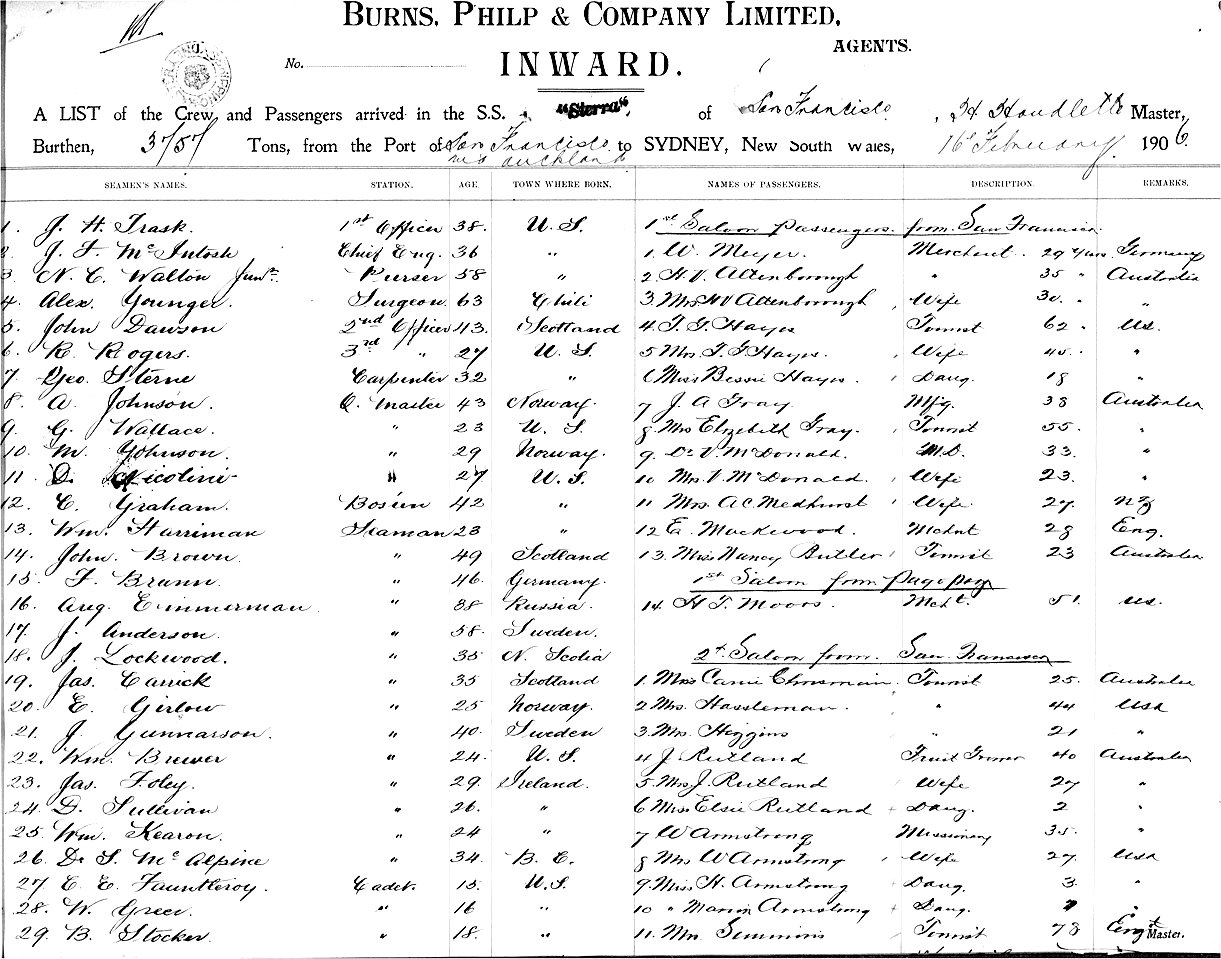 BURNS, PHILP & COMPANY LIMITED,
AGENTS.
No.
INWARD.
A LIST of the Crew and Passengers arrived in the S.S. "Sierra", of San Francisco, H. Houdlette Master,
Burthen, Tons, from the Port of San Francisco via Auckland to SYDNEY, New South Wales, 16 February 1906.
SEAMEN'S NAMES. STATION. AGE. TOWN WHERE BORN. NAMES OF PASSENGERS. DESCRIPTION. REMARKS.
1. J. H. Trask. 1st Officer 38. U. S. 1st Saloon Passengers. from San Francisco
2. J. F. McIntosh Chief Eng. 36 " 1. W. Meyer. Merchant 29 Germany
3. N. C. Walton Junr. Purser 58 " 2. H. V. Attenborough " 35 " Australia
4. Alex. Younger. Surgeon 63 Chili 3. Mrs H V Attenborough Wife 30 " "
5. John Dawson 2nd Officer 43. Scotland 4. T. G. Hayes Tourist 62 " US.
6. R. Rogers. 3rd " 27 U. S. 5 Mrs. T. G. Hayes. Wife 45. "
7. Geo. Sterne Carpenter 32 " 6 Miss Bessie Hayes. Daug. 18 "
8. A. Johnson. Q. Master 43 Norway. 7 J. A Gray. Mfg. 38 Australia
9. G. Wallace. " 23 U. S. 8 Mrs Elizabeth Gray. Tourist 55. "
10. M. Johnson. " 29 Norway. 9. Dr. V. McDonald. M.D. 33. "
11 D. Nicolini " 27 U. S. 10 Mrs. V. McDonald. Wife 23. "
12 C. Graham. Bos'un 42 " 11 Mrs. A C. Medhurst Wife 27 NZ
13. Wm. Harriman Seaman 23 " 12 E. Mackewood. Mchnt 28 Eng.
14. John Brown. " 49 Scotland 13. Miss Nancy Butler Tourist 23 Australia
15. F. Brann. " 46. Germany. 1st Saloon from Pago pago
16. Aug. Zimmerman " 38 Russia. 14. H. J. Moors. Mcht. 51. US.
17. J. Anderson. " 58. Sweden.
18. J. Lockwood. " 35 N. Scotia 2d. Saloon from. San Francisco
19. Jas. Carrick " 35 Scotland 1. Miss Carrie Tourist 25. Australia
20. E. Girlow " 25 Norway. 2 Mrs. Hassleman. " 44 USA
21. J. Gunnarson. " 40. Sweden 3. Mrs. Higgins " 21 "
22. Wm. Brewer " 24. U. S. 4 J. Rutland Fruit Grower 40 Australia
23. Jas. Foley. " 29. Ireland. 5. Mrs J. Rutland Wife 27 "
24. D. Sullivan " 26. " 6 Miss Elsie Rutland Daug. 2 "
25. Wm. Kearon. " 24 " 7 W Armstrong Missionary 35. "
26. D. S. McAlpine " 34. B. C. 8 Mrs W Armstrong Wife 27. USA
27. C. E. Fauntleroy. Cadet. 15. U. S. 9. Miss H. Armstrong Daug. 3. "
28. W. Greer. " 16 " 10 " Marion Armstrong Daug. "
29. B. Stocker. " 18. " 11. Mr. Simmins Tourist 78 Engt
Master.